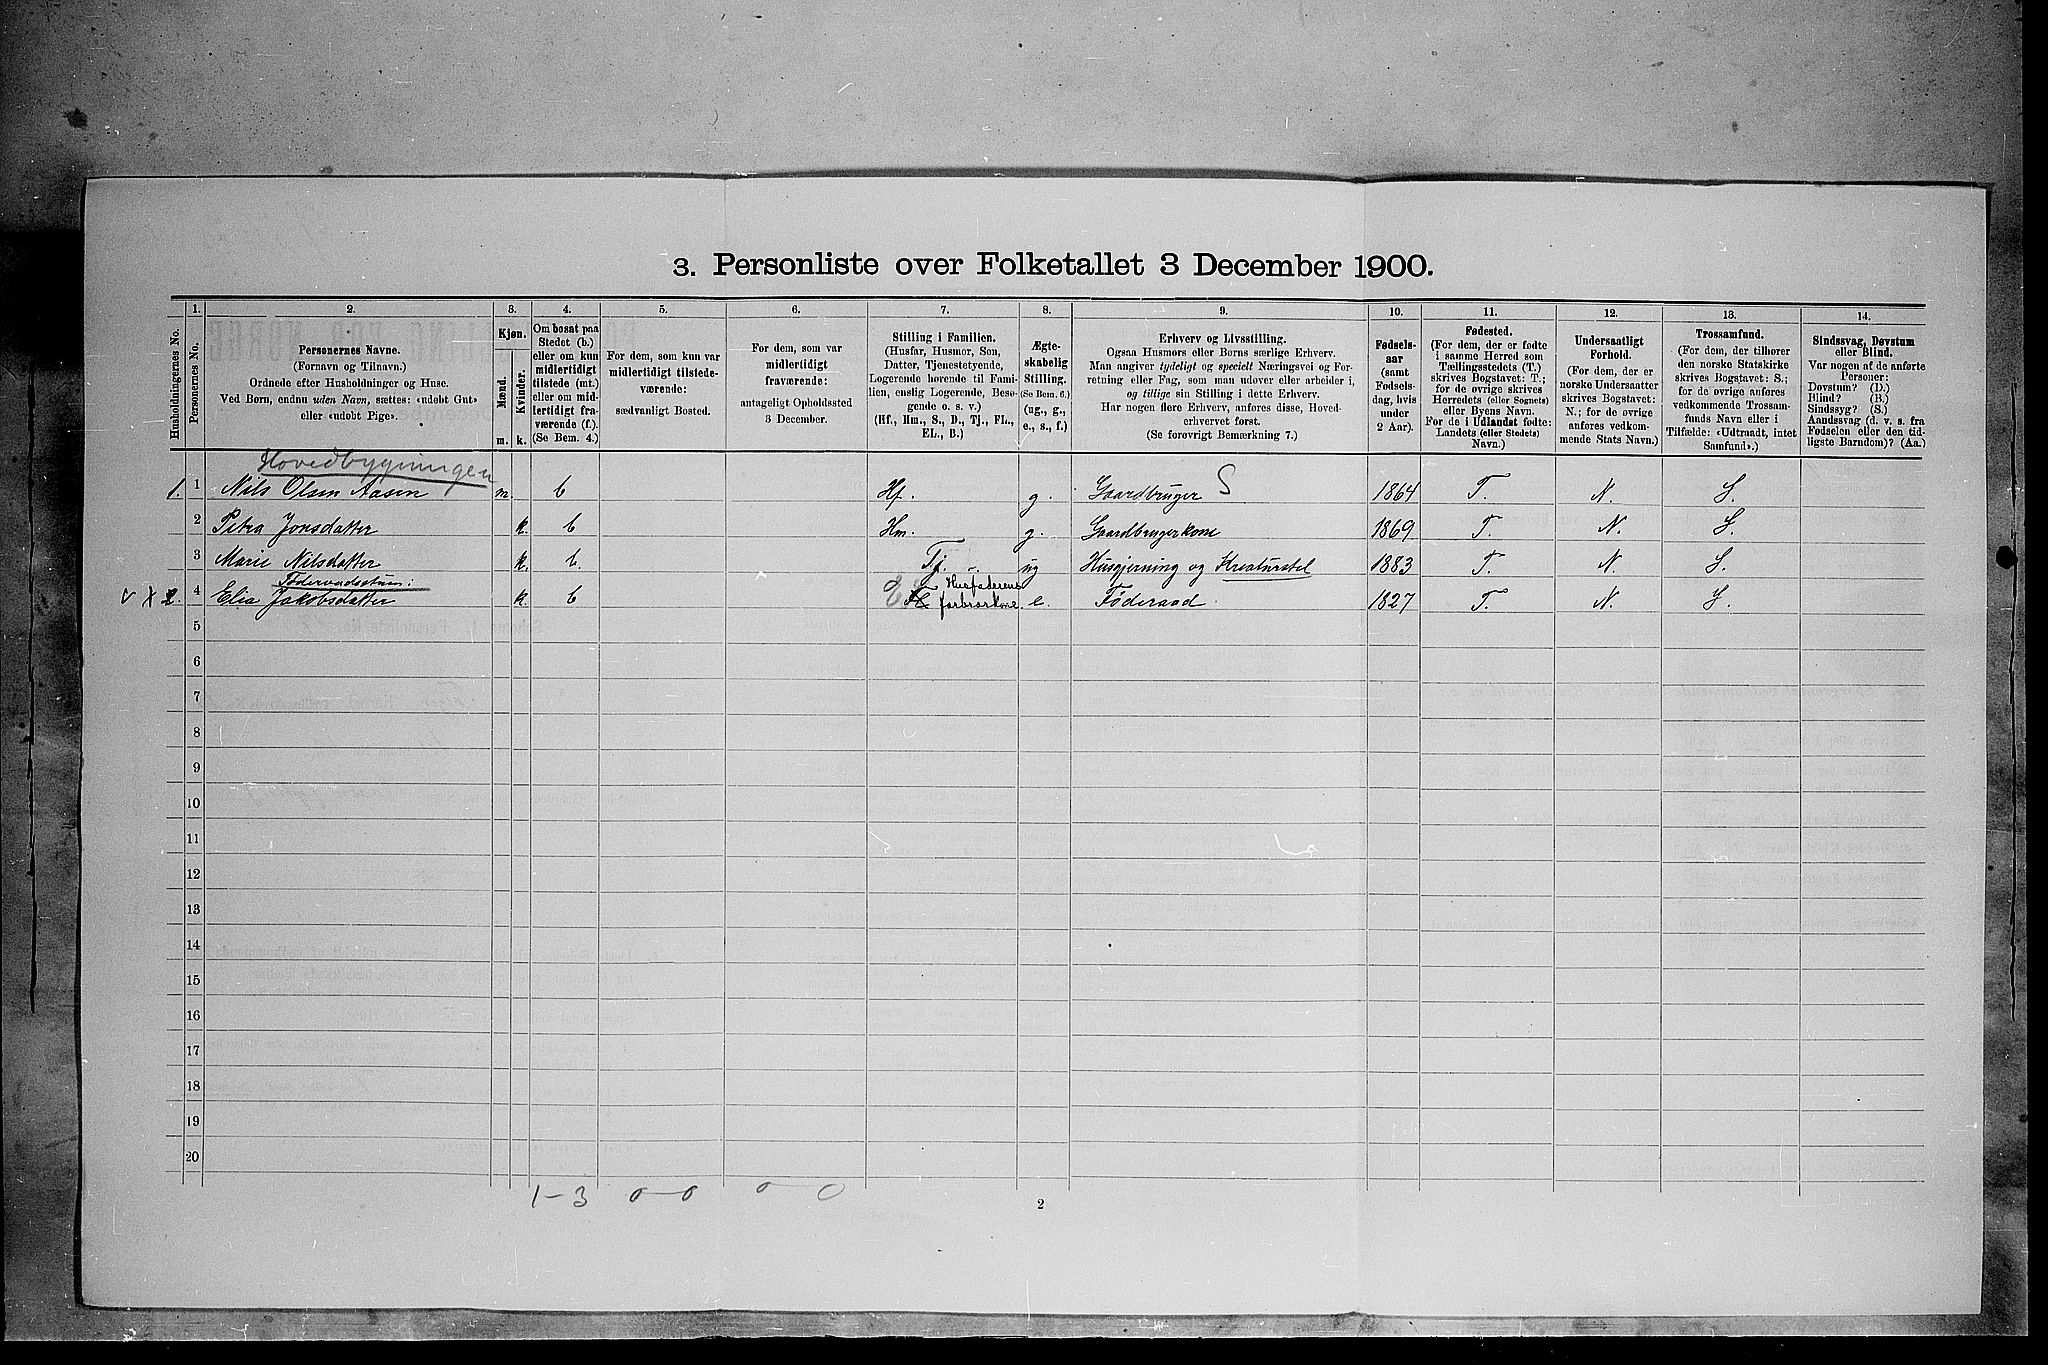 3. Personliste over Folketallet 3 December 1900.
Husholdningernes No.
1.
Personernes No.
2.
Personernes Navne.
(Fornavn og Tilnavn.)
Ordnede efter Husholdninger og Huse.
Ved Børn, endnu uden Navn, sættes: «udøbt Gut»
eller «udøbt Pige».
3.
Kjøn.
Mænd.
m.
Kvinder.
k.
4.
Om bosat paa
Stedet (b.)
eller om kun
midlertidigt
tilstede (mt.)
eller om mid-
lertidigt fra-
værende (f.).
(Se Bem. 4.)
5.
For dem, som kun var
midlertidigt tilstede-
værende:
sædvanligt Bosted.
6.
For dem, som var
midlertidigt
fraværende:
antageligt Opholdssted
3 December.
7.
Stilling i Familien.
(Husfar, Husmor, Søn,
Datter, Tjenestetyende,
Logerende hørende til Fami-
lien, enslig Logerende, Besø-
gende o. s. v.)
(Hf., Hm., S., D., Tj., FL.,
EL., B.)
8.
Ægte-
skabelig
Stilling.
(Se Bem. 6.)
(ug., g.,
e., s., f.)
9.
Erhverv og Livsstilling.
Ogsaa Husmors eller Børns særlige Erhverv.
Man angiver tydeligt og specielt Næringsvei og For-
retning eller Fag, som man udøver eller arbeider i,
og tillige sin Stilling i dette Erhverv.
Har nogen flere Erhverv, anføres disse, Hoved-
erhvervet først.
(Se forøvrigt Bemærkning 7.)
10.
Fødsels-
aar
(samt
Fødsels-
dag, hvis
under
2 Aar).
11.
Fødested.
(For dem, der er fødte
i samme Herred som
Tællingsstedets (T.)
skrives Bogstavet: T.;
for de øvrige skrives
Herredets (eller Sognets)
eller Byens Navn.
For de i Udlandet fødte:
Landets (eller Stedets)
Navn.)
12.
Undersaatligt
Forhold.
(For dem, der er
norske Undersaatter
skrives Bogstavet:
N.; for de øvrige
anføres vedkom-
mende Stats Navn.)
13.
Trossamfund.
(For dem, der tilhører
den norske Statskirke
skrives Bogstavet: S.;
for de øvrige anføres
vedkommende Trossam-
funds Navn eller i
Tilfælde: «Udtraadt, intet
Samfund».)
14.
Sindssvag, Døvstum
eller Blind.
Var nogen af de anførte
Personer:
Døvstum? (D.)
Blind? (B.)
Sindssyg? (S.)
Aandssvag (d. v. s. fra
Fødselen eller den tid-
ligste Barndom)? (Aa.)
Hovedbygningen
1. 1 Nils Olsen Aasen m. b Hf. g. Gaardbruger S 1864 T. N. S.
2 Petra Jonsdatter k. b Hm. g. Gaardbrugerkone 1869 T. N. S.
3 Marie Nilsdatter k. b. Tj. ug Husgjerning og Kreaturstel 1883 T. N. S.
Føderaadsstuen:
Husfaderens
v x 2. 4 Elia Jakobsdatter k. b farbrorkone e. Føderaad 1827 T. N. S.
5
6
7
8
9
10
11
12
13
14
15
16
17
18
19
20
1-3 0-0 0 0
2